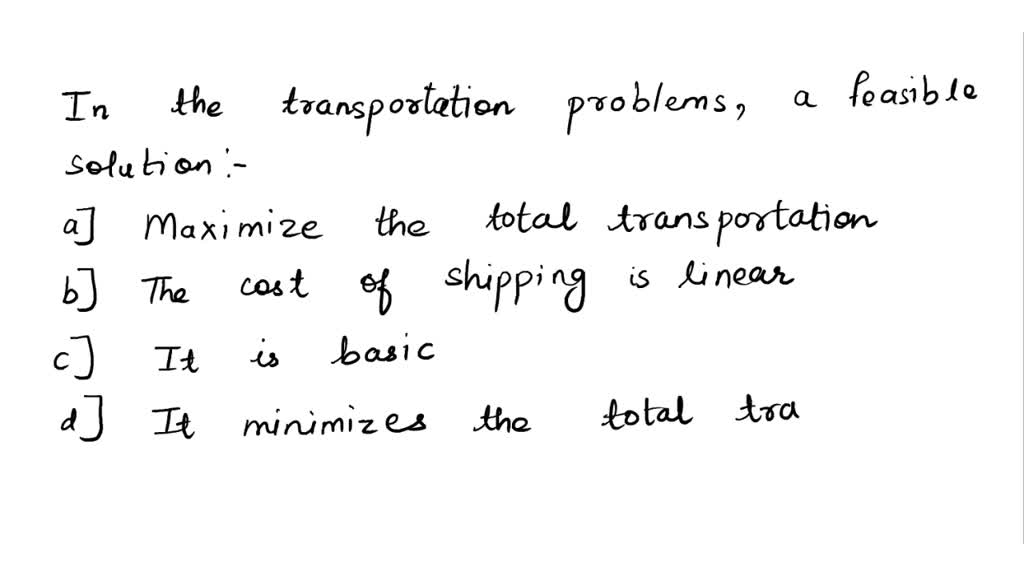 In the transportation problems, a feasible
solution :-
a] Maximize the total transportation
b] The cost of shipping is linear
c] It is basic
d] It minimizes the total tra